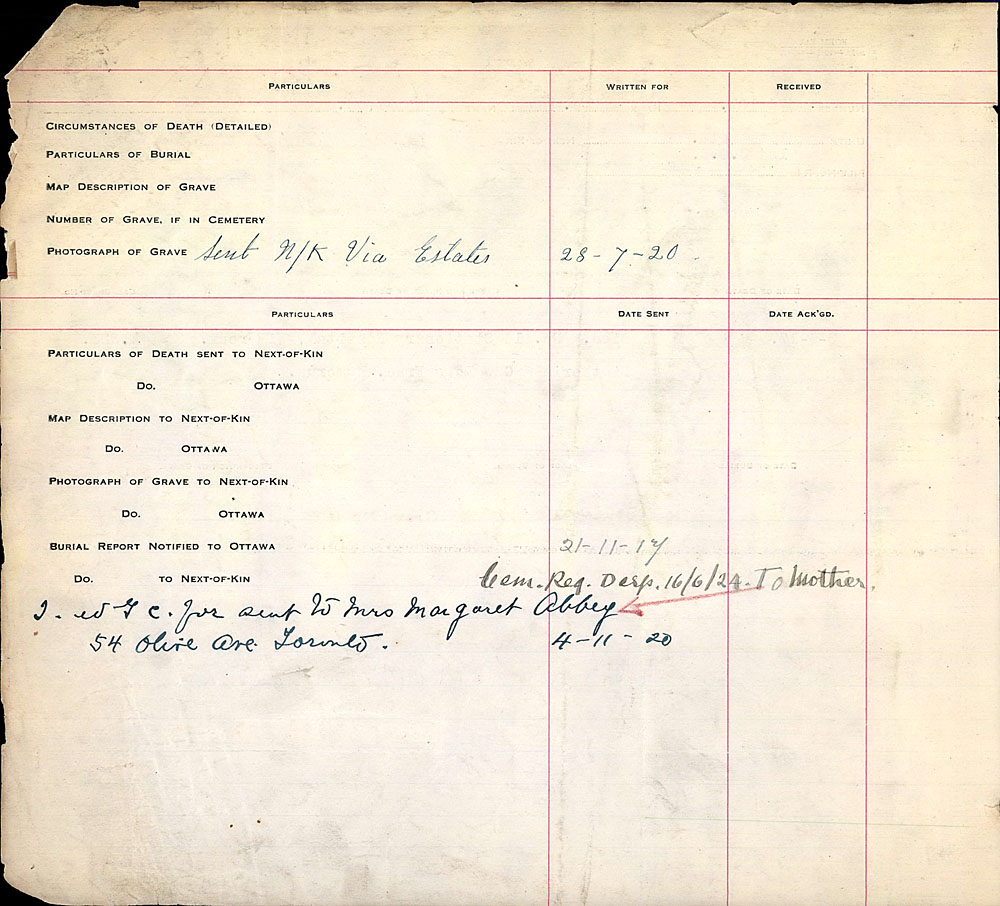 PARTICULARS WRITTEN FOR RECEIVED
CIRCUMSTANCES OF DEATH (DETAILED)
PARTICULARS OF BURIAL
MAP DESCRIPTION OF GRAVE
NUMBER OF GRAVE, IF IN CEMETERY
PHOTOGRAPH OF GRAVE Sent N/K Via Estates 28-7-20
PARTICULARS DATE SENT DATE ACK'GD.
PARTICULARS OF DEATH SENT TO NEXT-OF-KIN
DO. OTTAWA
MAP DESCRIPTION TO NEXT-OF-KIN
DO. OTTAWA
PHOTOGRAPH OF GRAVE TO NEXT-OF-KIN
DO. OTTAWA
BURIAL REPORT NOTIFIED TO OTTAWA 21-11-17
DO. TO NEXT-OF-KIN Cem. Reg. Desp. 16/6/24. To Mother.
sent to Mrs Margaret Abbey
54 Olive Ave Toronto. 4-11-20